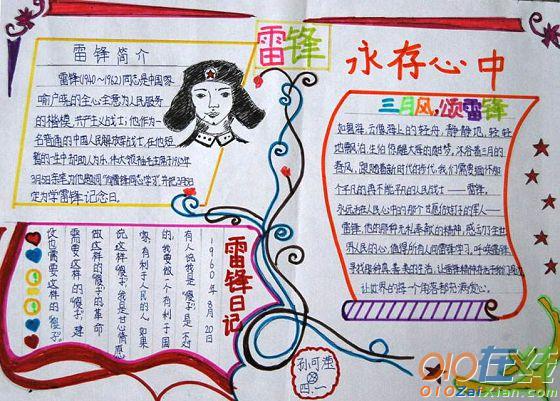 雷锋
永存心中
雷锋简介
雷锋(1940~1962)同志是中国家
喻户晓的全心全意为人民服务
的楷模,共产主义战士,他作为一
名普通的中国人民解放军战士,在他短
暂的一生中却助人为乐,伟大领袖毛主席于1963年
3月5日亲笔为他题词“向雷锋同志学习”并把3月5日
定为学雷锋纪念日。
三月风,颂雷锋
如碧海云偎
静静地,轻轻
春风,
时代的步伐,我们需要缅怀那
个平凡的再不能平凡的人民战士——雷锋。
永远活在人民心中的那个甘愿做钉子的伟人——
雷锋,他的那种无私奉献的精神,感动了全世
界人民的心,值得所有人向雷锋学习,呼唤雷锋
让世界的每个角落都充满爱心。
雷锋日记
1960年8月20日
有人说我是“傻子”,是不对
的。我要做一个有利于国
家,有利于人民的人,如果
说这是“傻子”,我是甘心情愿
做这样的“傻子”的,革命
需要这样的“傻子”,建
设也需要这样的“傻子”。
孙可滢
四.一
010在线
010ZaiXian.com